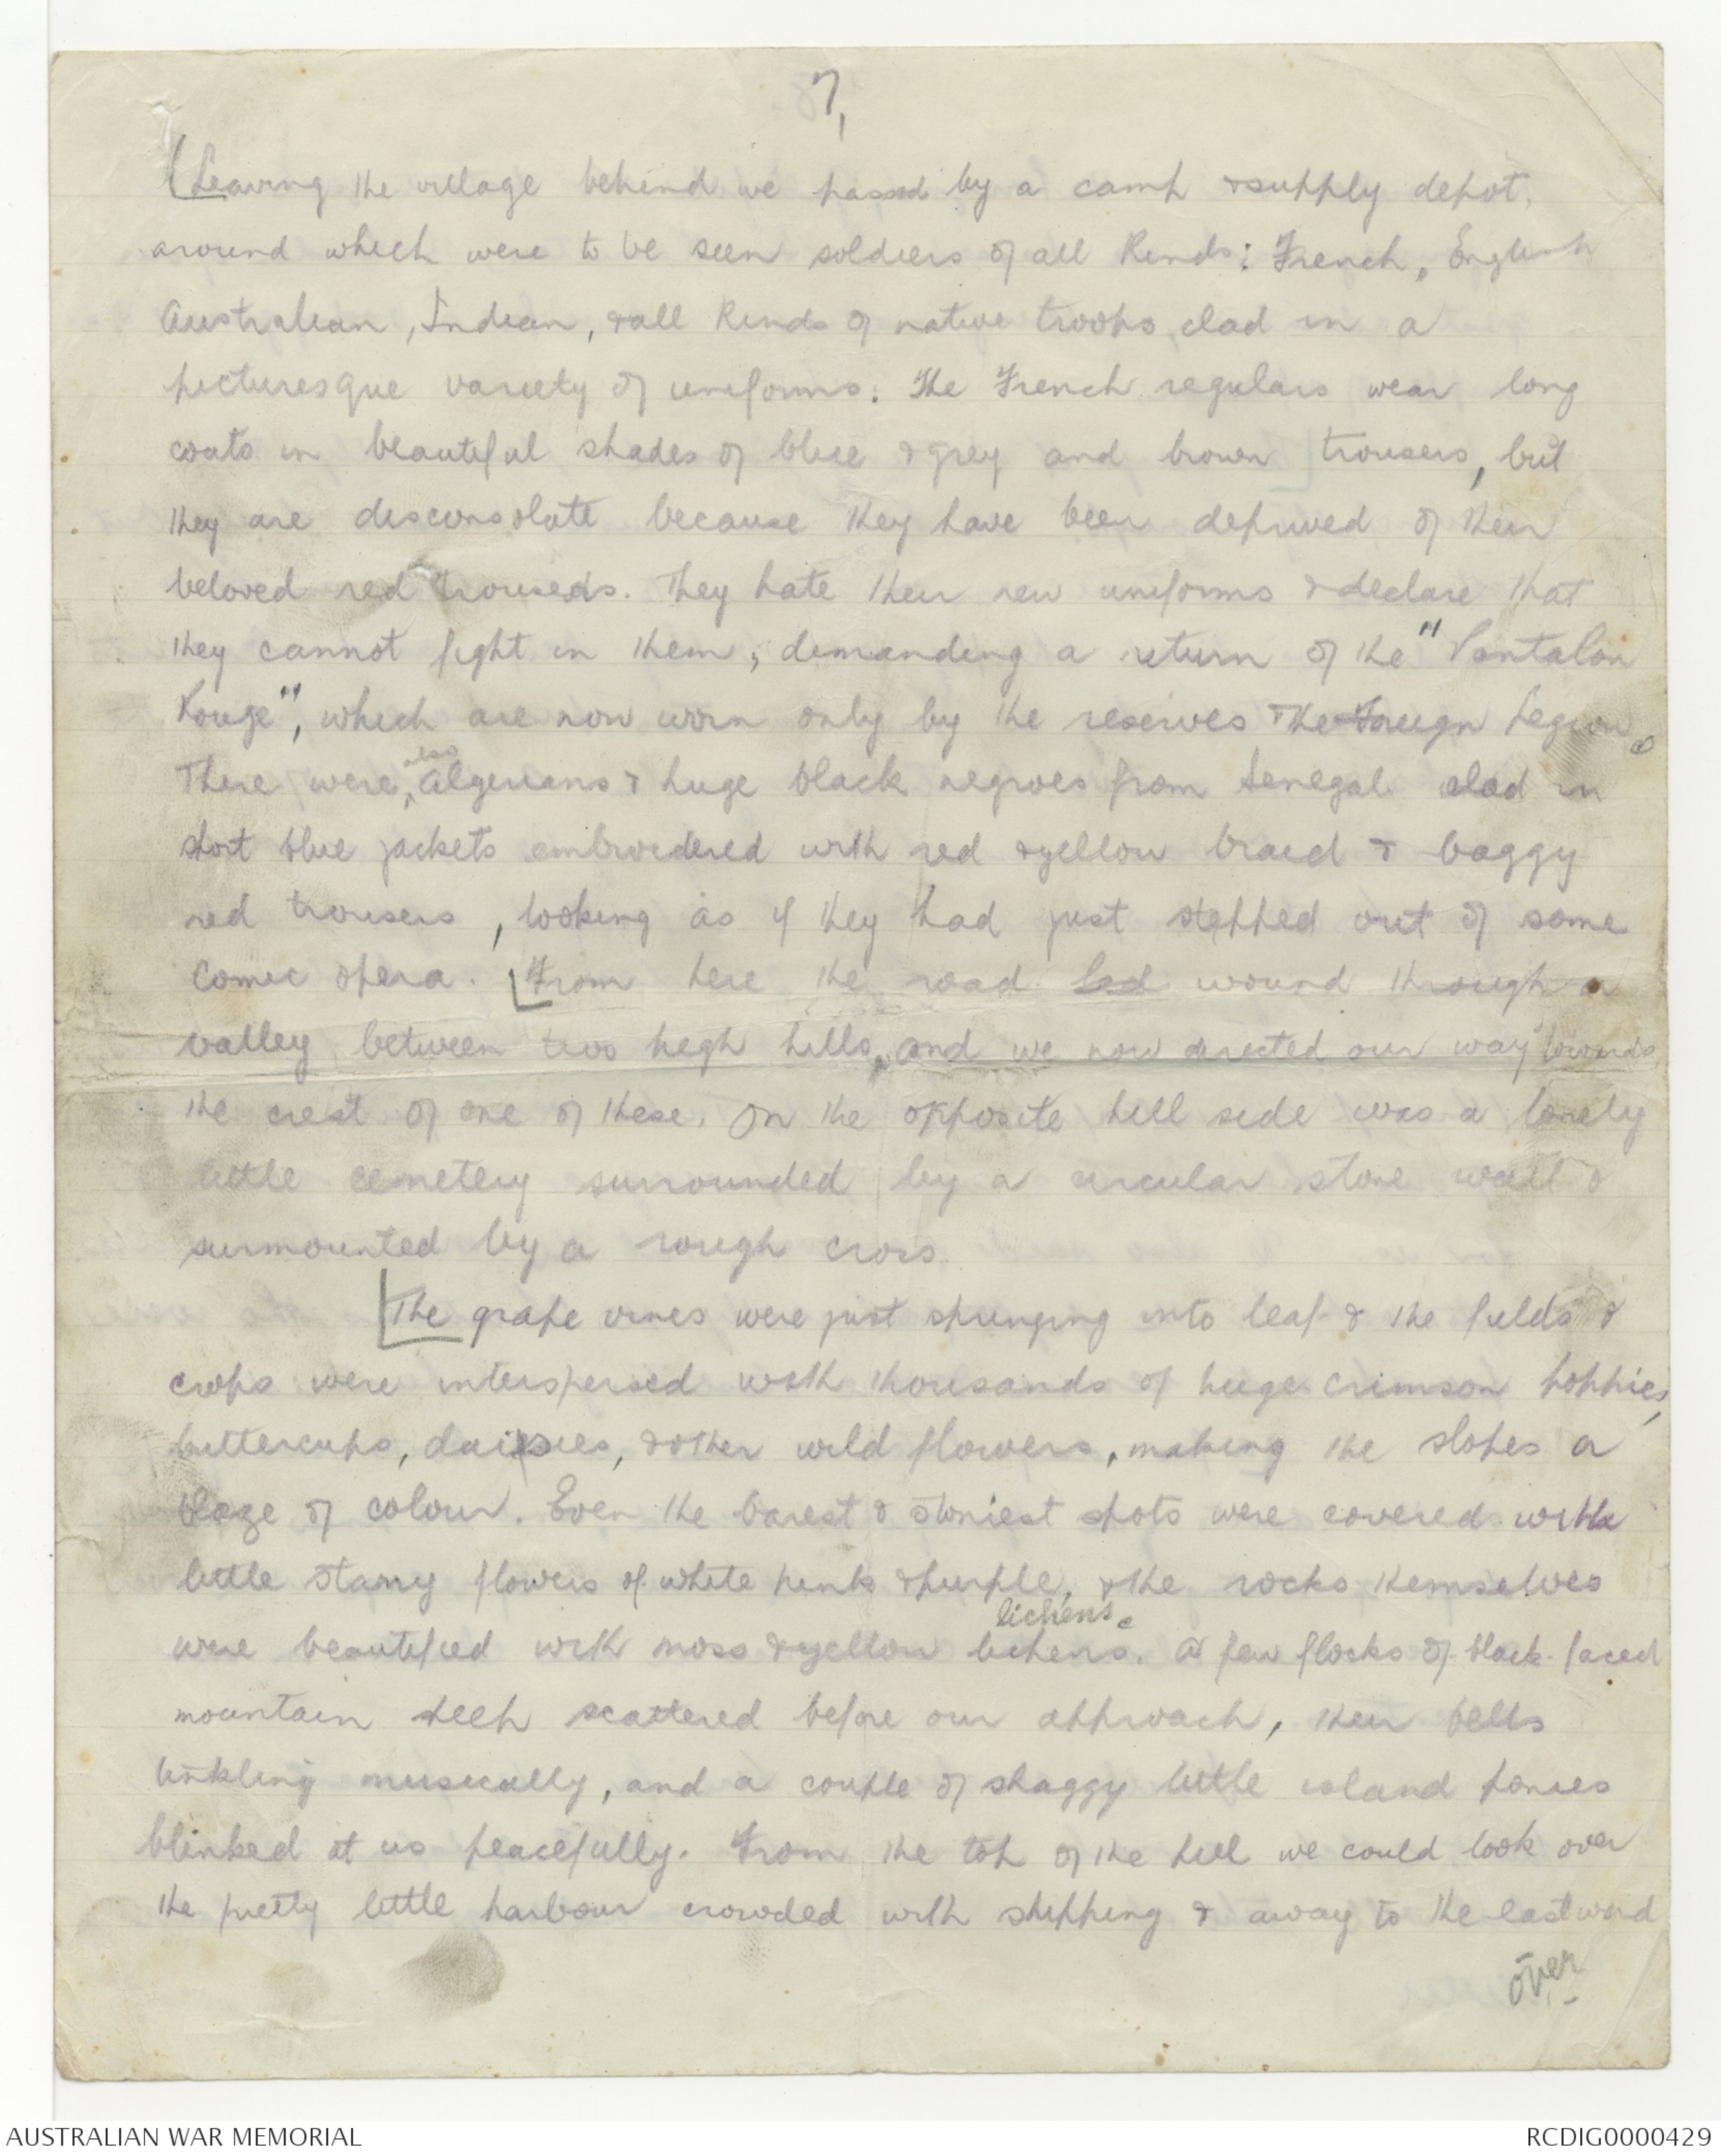 7,
[Leaving the village behind we passed by a camp & supply depot,
around which were to be seen soldiers of all kinds: French, English
Australian, Indian, & all kinds of native troops clad in a
picturesque variety of uniforms. The French regulars wear long
coats in beautiful shades of blue & grey and brown trousers, but
they are disconsolate because they have been deprived of their
beloved red trousers. They hate their new uniforms & declare that
they cannot fight in them, demanding a return of the "Pantalon
Rouge", which are now worn only by the reserves & the Foreign Legion.
also
There were, Algerians & huge black negroes from Senegal clad in
short blue jackets embroidered with red & yellow braid & baggy
red trousers, looking as if they had just stepped out of some
comic opera. [From here the road led wound through a
valley between two high hills, and we now directed our way towards
the crest of one of these. On the opposite hill side was a lonely
little cemetery surrounded by a circular stone wall &
surmounted by a rough cross.
[The grape vines were just springing into leaf & the fields &
crops were interspersed with thousands of huge crimson poppies,
buttercups, daisies, & other wild flowers, making the slopes a
blaze of colour. Even the barest & stoniest spots were covered with
little starry flowers of white pink & purple, & the rocks themselves
lichens.
were beautified with moss & yellow lichens. A few flocks of black-faced
mountain sheep scattered before our approach, their bells
tinkling musically, and a couple of shaggy little island ponies
blinked at us peacefully. From the top of the hill we could look over
the pretty little harbour crowded with shipping & away to the eastward
over
AUSTRALIAN WAR MEMORIAL
RCDIG0000429